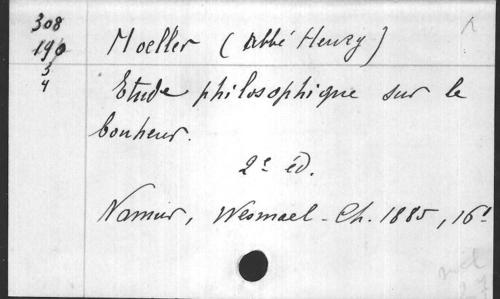 308
190
3
4
Moeller (Abbé Henry)
Etude philosophique sur le
bonheur.
2e éd.
Namur, Wesmael-Ch. 1885, 16°